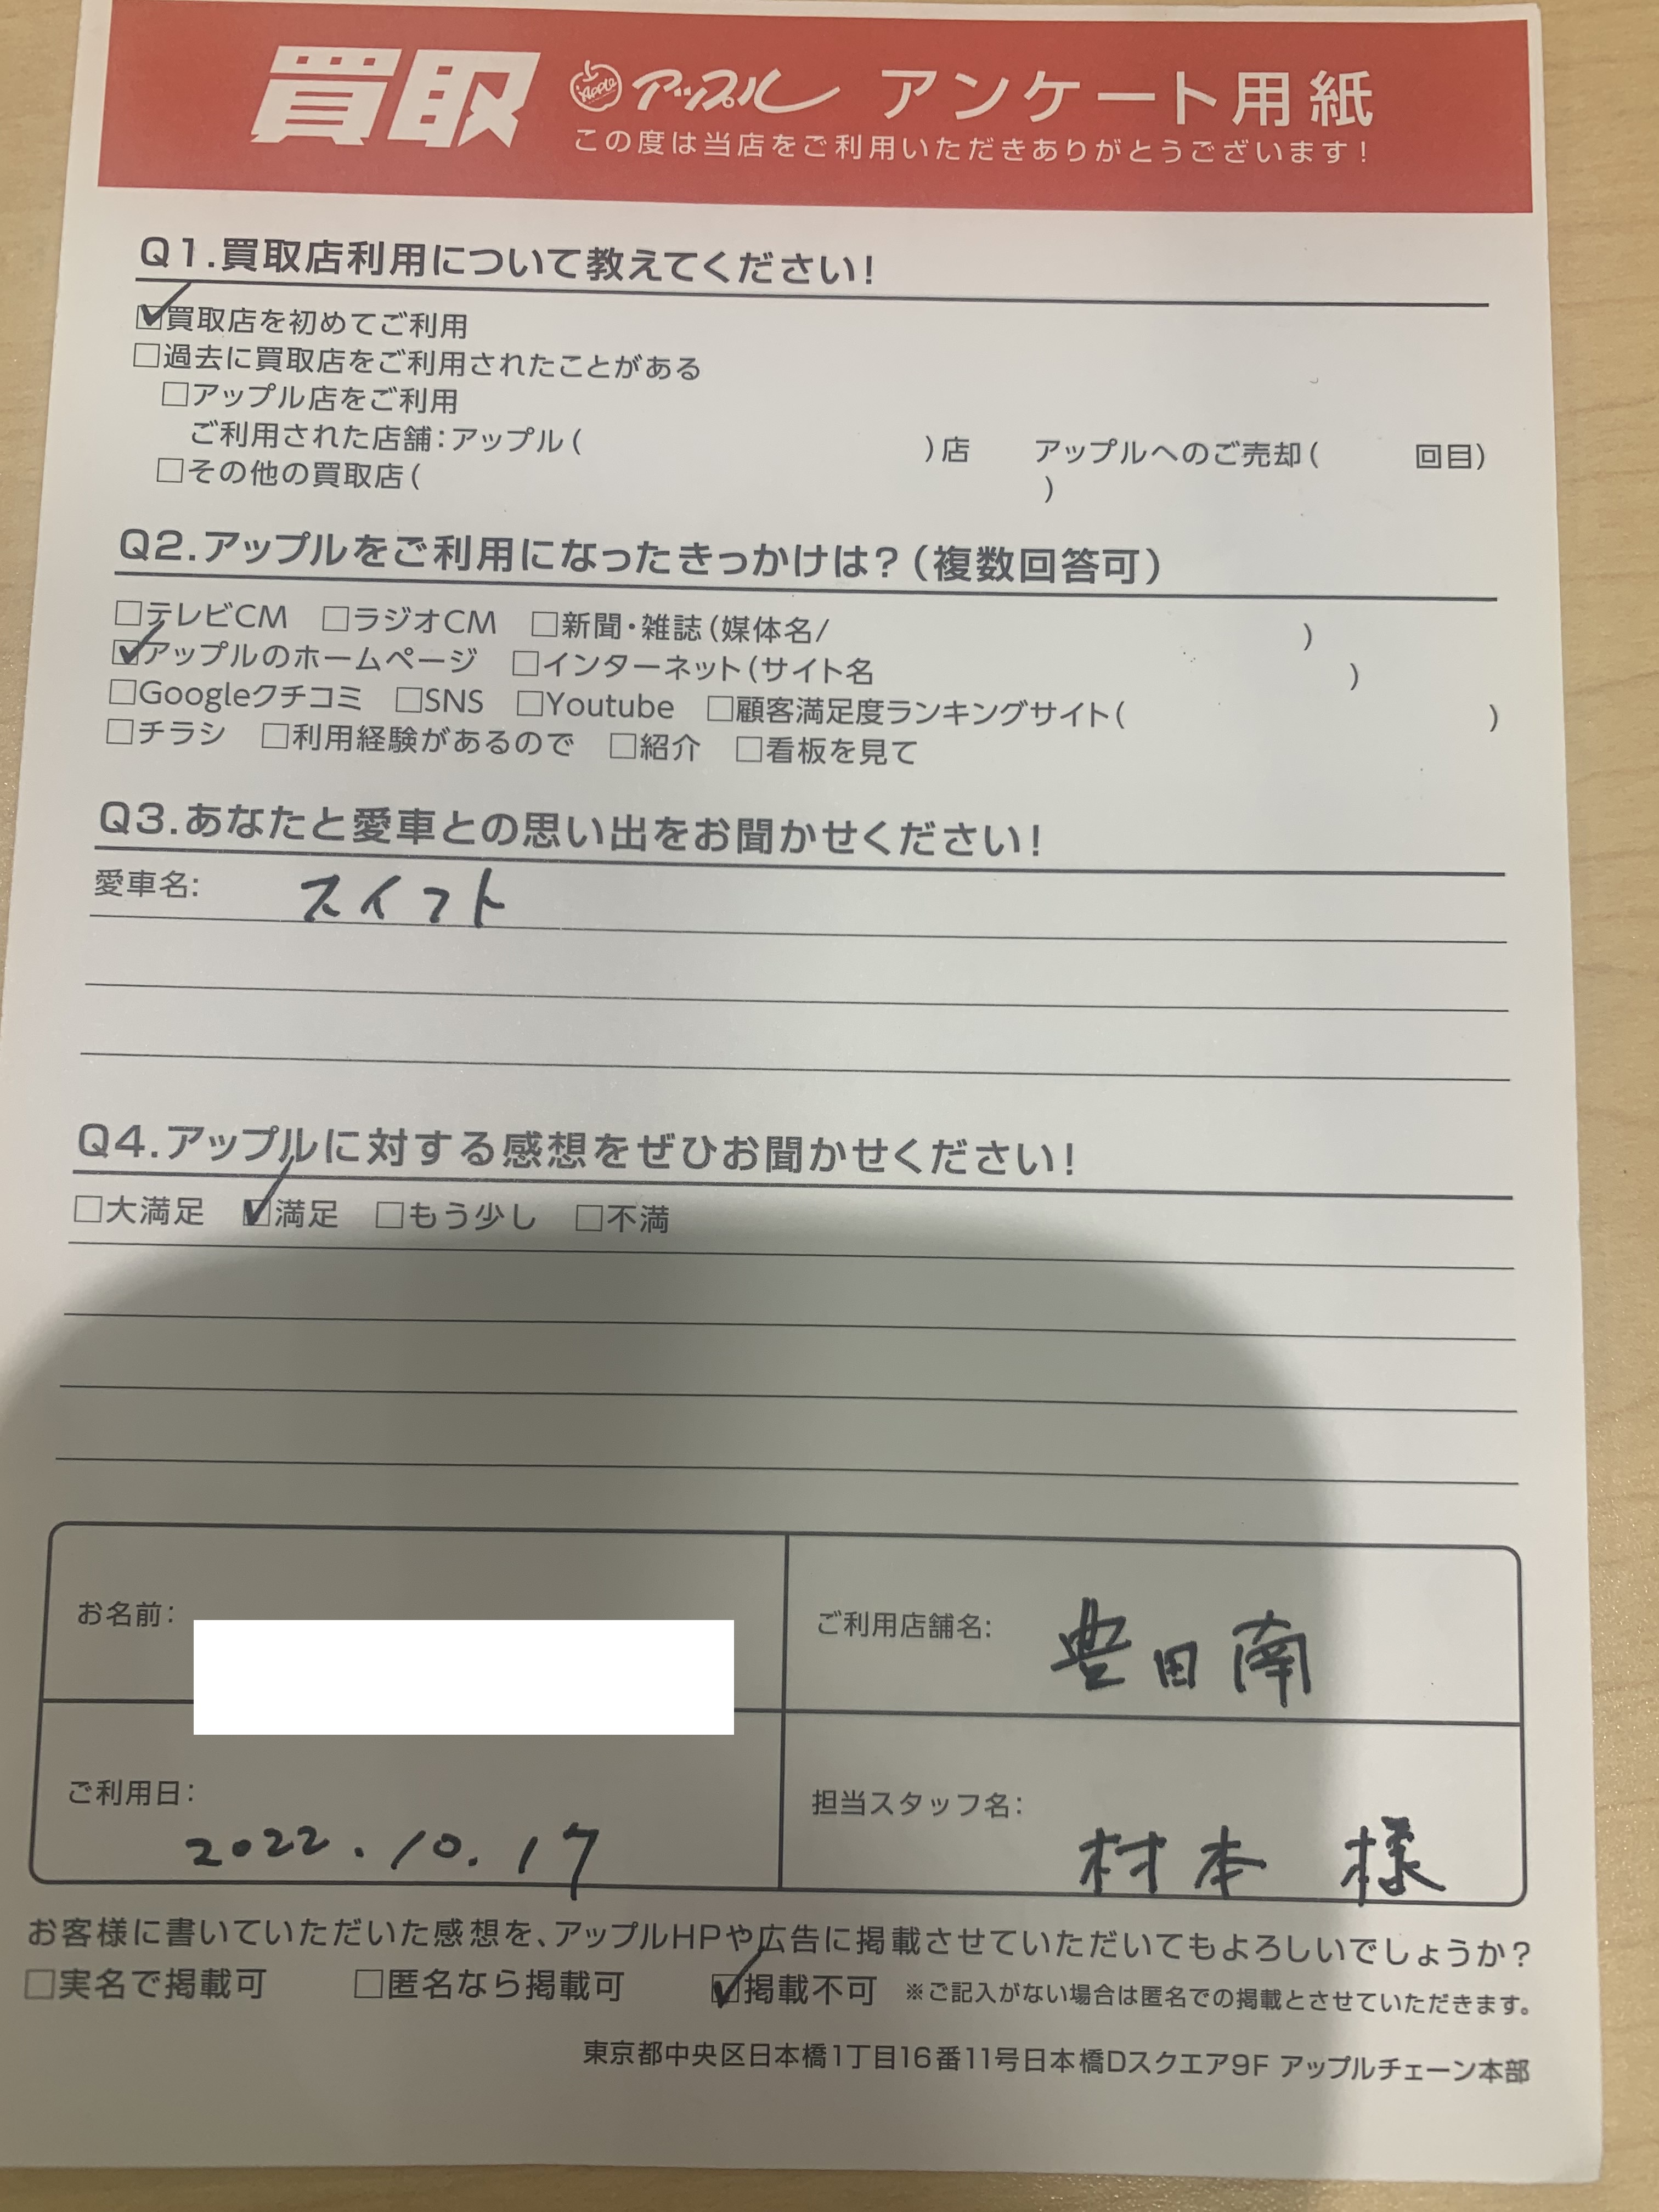 買取 Apple アップル アンケート用紙
この度は当店をご利用いただきありがとうございます!
Q1.買取店利用について教えてください!
☑買取店を初めてご利用
□過去に買取店をご利用されたことがある
□アップル店をご利用
ご利用された店舗:アップル( )店 アップルへのご売却( 回目)
□その他の買取店( )
Q2.アップルをご利用になったきっかけは?(複数回答可)
□テレビCM □ラジオCM □新聞・雑誌(媒体名/ )
☑アップルのホームページ □インターネット(サイト名 )
□Googleクチコミ □SNS □Youtube □顧客満足度ランキングサイト( )
□チラシ □利用経験があるので □紹介 □看板を見て
Q3.あなたと愛車との思い出をお聞かせください!
愛車名: スイフト
Q4.アップルに対する感想をぜひお聞かせください!
□大満足 ☑満足 □もう少し □不満
お名前:
ご利用店舗名: 豊田南
ご利用日: 2022.10.17
担当スタッフ名: 村本 様
お客様に書いていただいた感想を、アップルHPや広告に掲載させていただいてもよろしいでしょうか?
□実名で掲載可 □匿名なら掲載可 ☑掲載不可 ※ご記入がない場合は匿名での掲載とさせていただきます。
東京都中央区日本橋1丁目16番11号日本橋Dスクエア9F アップルチェーン本部